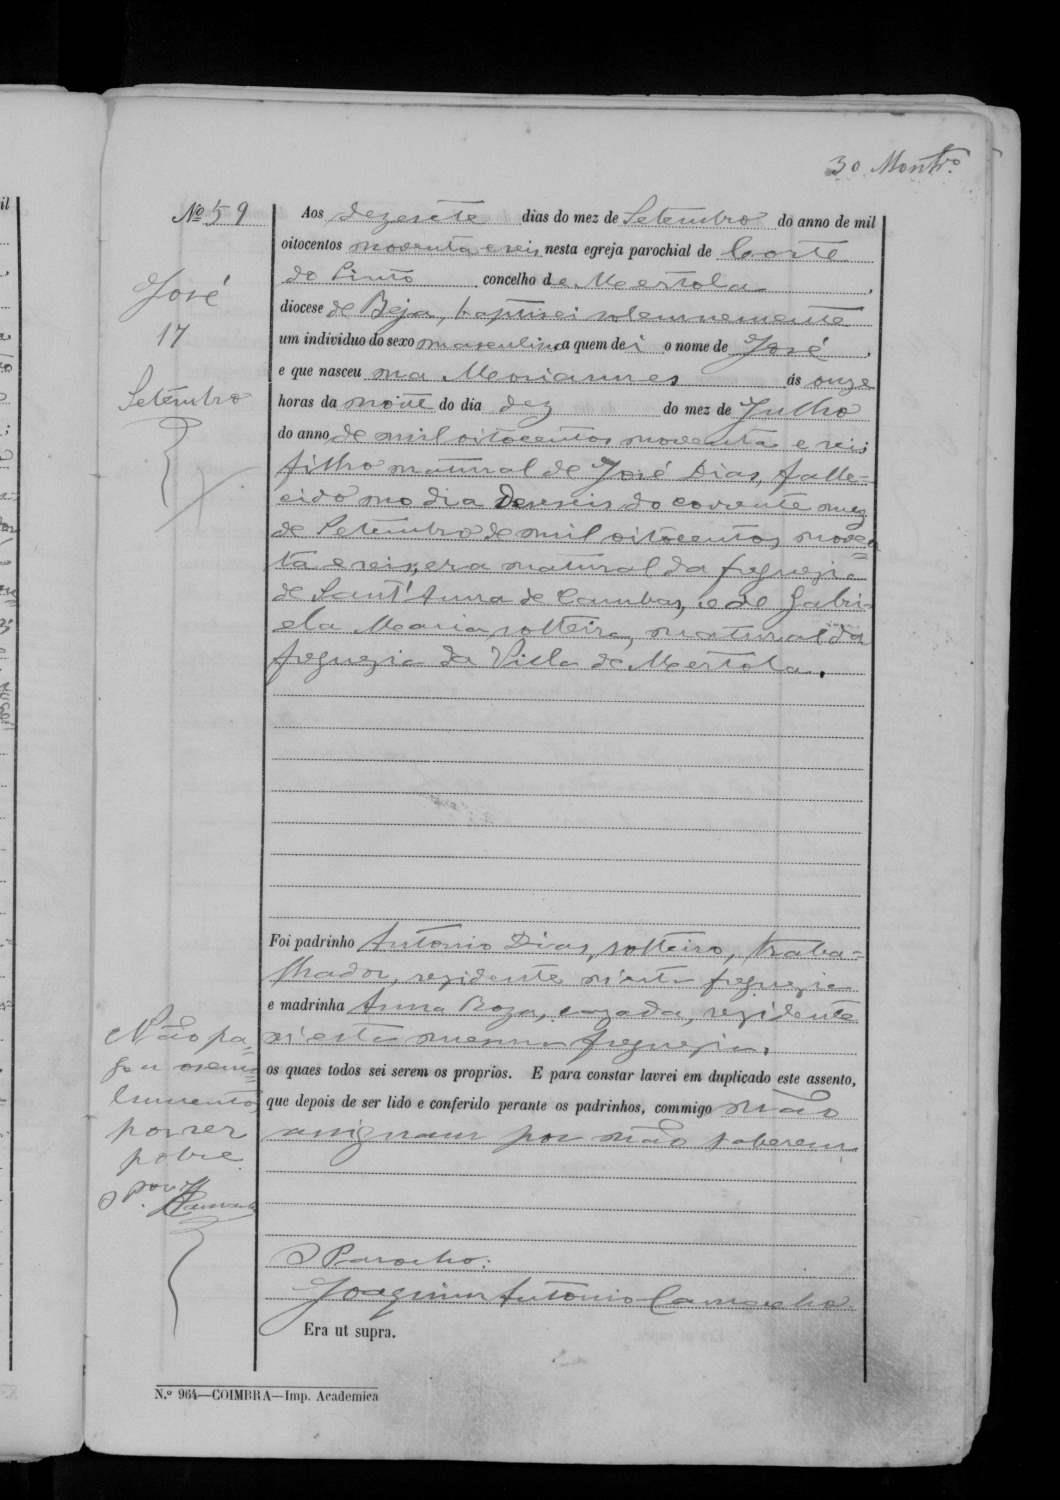 30 Montro.
Nº 59
José
17
Setembro
Aos dezesete dias do mez de Setembro do anno de mil
oitocentos noventa e seis, nesta egreja parochial de Corte
do Pinto concelho de Mertola,
diocese de Beja, baptisei solemnemente
um individuo do sexo masculino a quem dei o nome de José,
e que nasceu na Moriannes ás onze
horas da noite do dia dez do mez de Julho
do anno de mil oitocentos noventa e seis,
filho natural de José Dias, falle-
cido no dia Deseseis do corrente mez
de Setembro de mil oitocentos noven-
ta e seis, era natural da freguezia
de Sant'Anna de Cambas, e de Gabri-
ela Maria, solteira, natural da
freguezia da Villa de Mertola.
Foi padrinho Antonio Dias, solteiro, traba-
lhador, rezidente n'esta freguezia
e madrinha Anna Roza, cazada, rezidente
n'esta mesma freguezia,
os quaes todos sei serem os proprios. E para constar lavrei em duplicado este assento,
que depois de ser lido e conferido perante os padrinhos, commigo não
assignam por não saberem.
O Parocho:
Joaquim Antonio Camacho.
Era ut supra.
Não pa-
gou os emo-
lumentos
por ser
pobre
O Par.
Camacho
N.º 964—COIMBRA—Imp. Academica